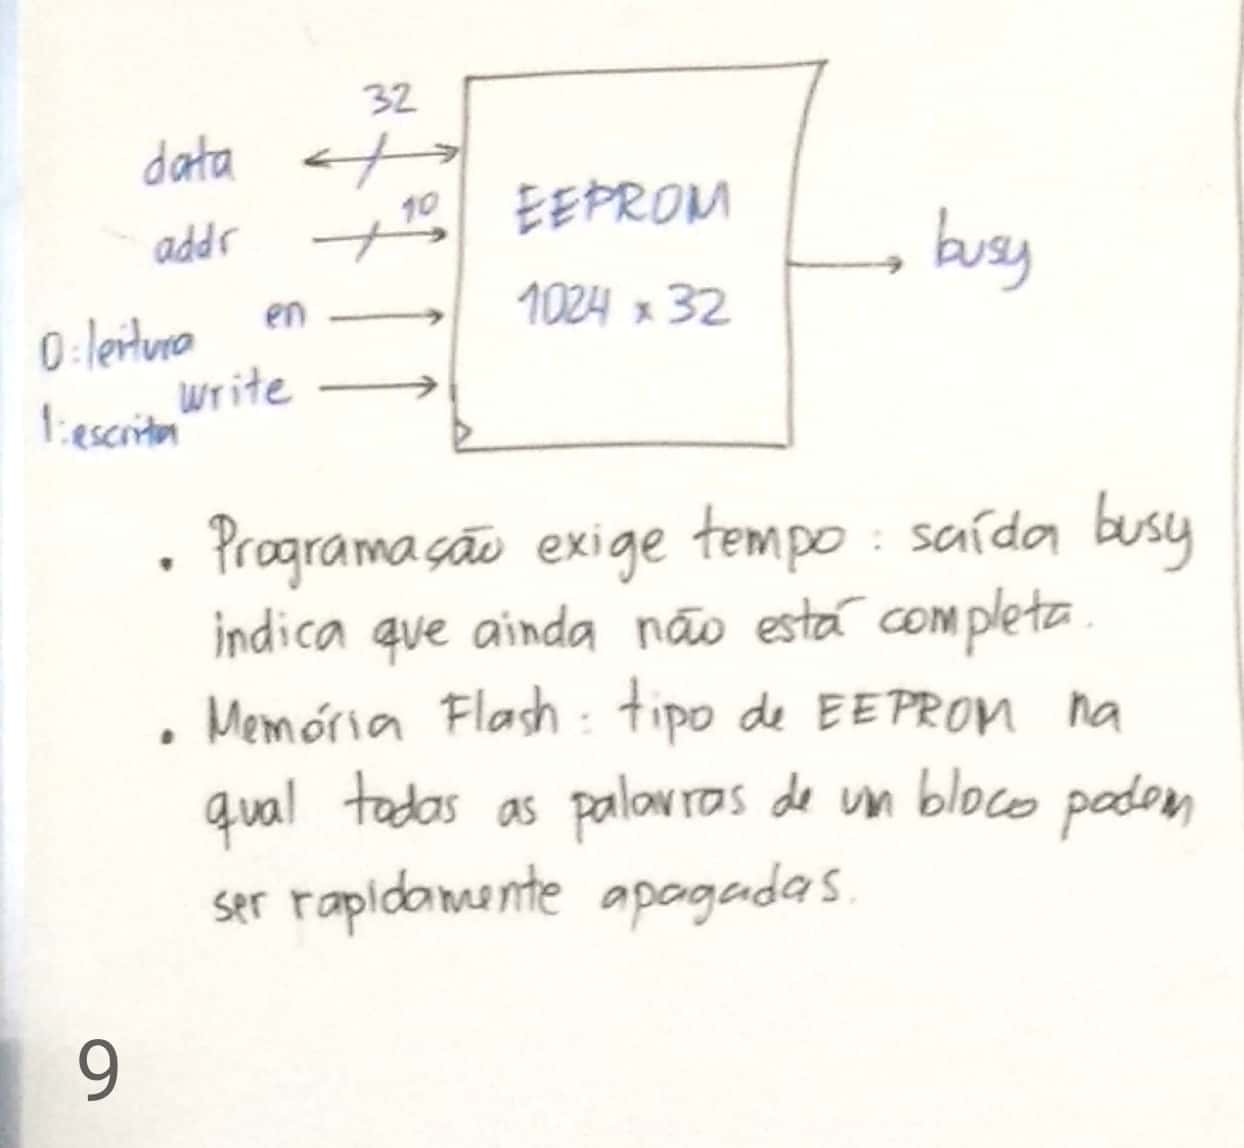 32
data
10
addr
EEPROM
1024 x 32
busy
en
0:leitura
write
1:escrita
. Programação exige tempo: saída busy
indica que ainda não está completa.
. Memória Flash: tipo de EEPROM na
qual todas as palavras de um bloco podem
ser rapidamente apagadas.
9